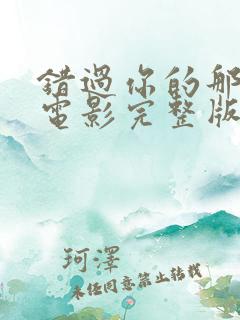 錯過你的那
電影完整版
珂澤
未經同意禁止轉載